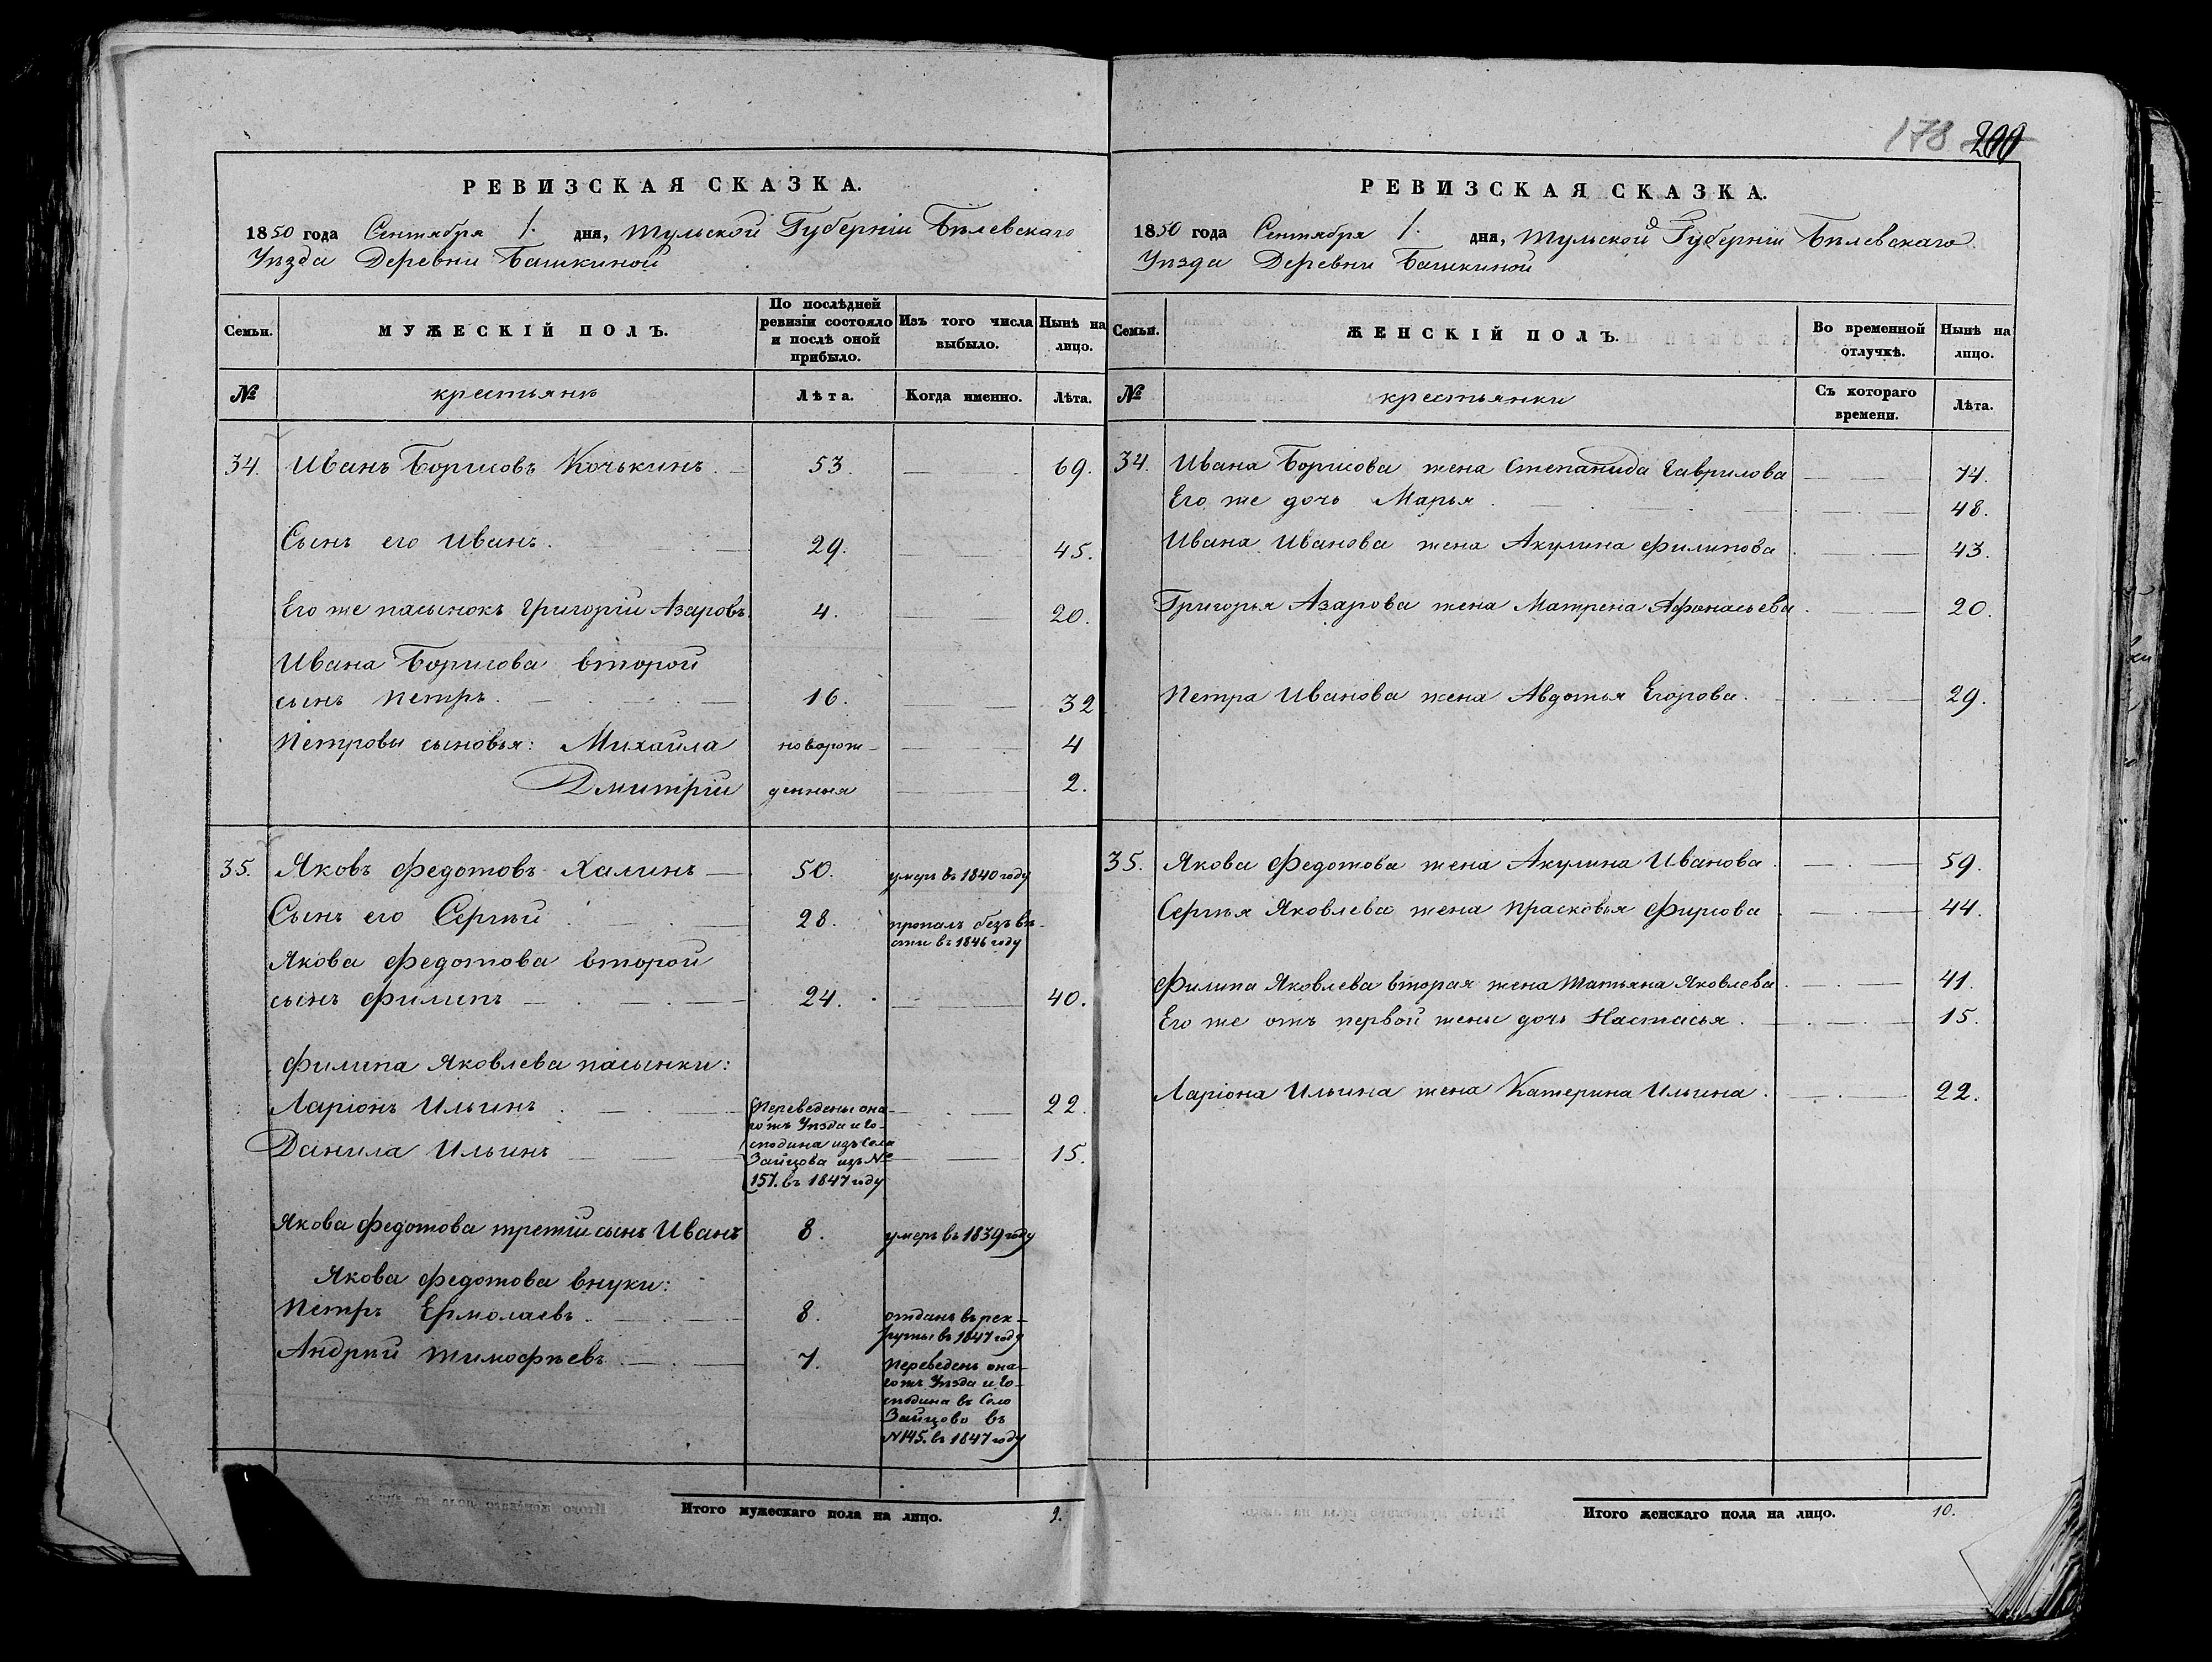 178 200
РЕВИЗСКАЯ СКАЗКА.
1850 года Сентября 1. дня, Тульской Губерніи Бѣлевскаго
Уѣзда Деревни Башкиной
Семьи. МУЖЕСКІЙ ПОЛЪ. По послѣдней ревизіи состояло и послѣ оной прибыло. Изъ того числа выбыло. Нынѣ на лицо.
№ крестьянъ Лѣта. Когда именно. Лѣта.
34. Иванъ Борисовъ Кочькинъ. 53. 69.
Сынъ его Иванъ. 29. 45.
Его же пасынокъ Григорій Азаровъ. 4. 20.
Ивана Борисова второй
сынъ Петръ. 16. 32
Петровы сыновья: Михайла новорож- 4
Дмитрій денныя 2.
35. Яковъ Федотовъ Халинъ 50. умеръ въ 1840 году
Сынъ его Сергѣй 28. пропалъ безъ вѣ-
сти въ 1846 году
Якова Федотова второй
сынъ Филипъ 24. 40.
Филипа Яковлева пасынки:
Ларіонъ Ильинъ 22.
Данила Ильинъ 15.
Переведены она-
гожъ Уѣзда и Го-
сподина изъ Села
Зайцова изъ №
157. въ 1847 году
Якова Федотова третій сынъ Иванъ 8. умеръ въ 1839 году
Якова Федотова внуки:
Петръ Ермолаевъ. 8. отданъ въ рек-
руты въ 1847 году
Андрѣй Тимофѣевъ. 7. Переведенъ она-
гожъ Уѣзда и Го-
сподина въ Село
Зайцово въ
№145. въ 1847 году
Итого мужескаго пола на лицо. 9.
РЕВИЗСКАЯ СКАЗКА.
1850 года Сентября 1. дня, Тульской Губерніи Бѣлевскаго
Уѣзда Деревни Башкиной
Семьи. ЖЕНСКІЙ ПОЛЪ. Во временной отлучкѣ. Нынѣ на лицо.
№ крестьянки Съ котораго времени. Лѣта.
34. Ивана Борисова жена Степанида Гаврилова 74.
Его же дочь Марья. 48.
Ивана Иванова жена Акулина Филипова. 43.
Григорья Азарова жена Матрена Афонасьева. 20.
Петра Иванова жена Авдотья Егорова. 29.
35. Якова Федотова жена Акулина Иванова. 59.
Сергѣя Яковлева жена Прасковья Фирсова 44.
Филипа Яковлева вторая жена Татьяна Яковлева. 41.
Его же отъ первой жены дочь Настасья. 15.
Ларіона Ильина жена Катерина Ильина. 22.
Итого женскаго пола на лицо. 10.